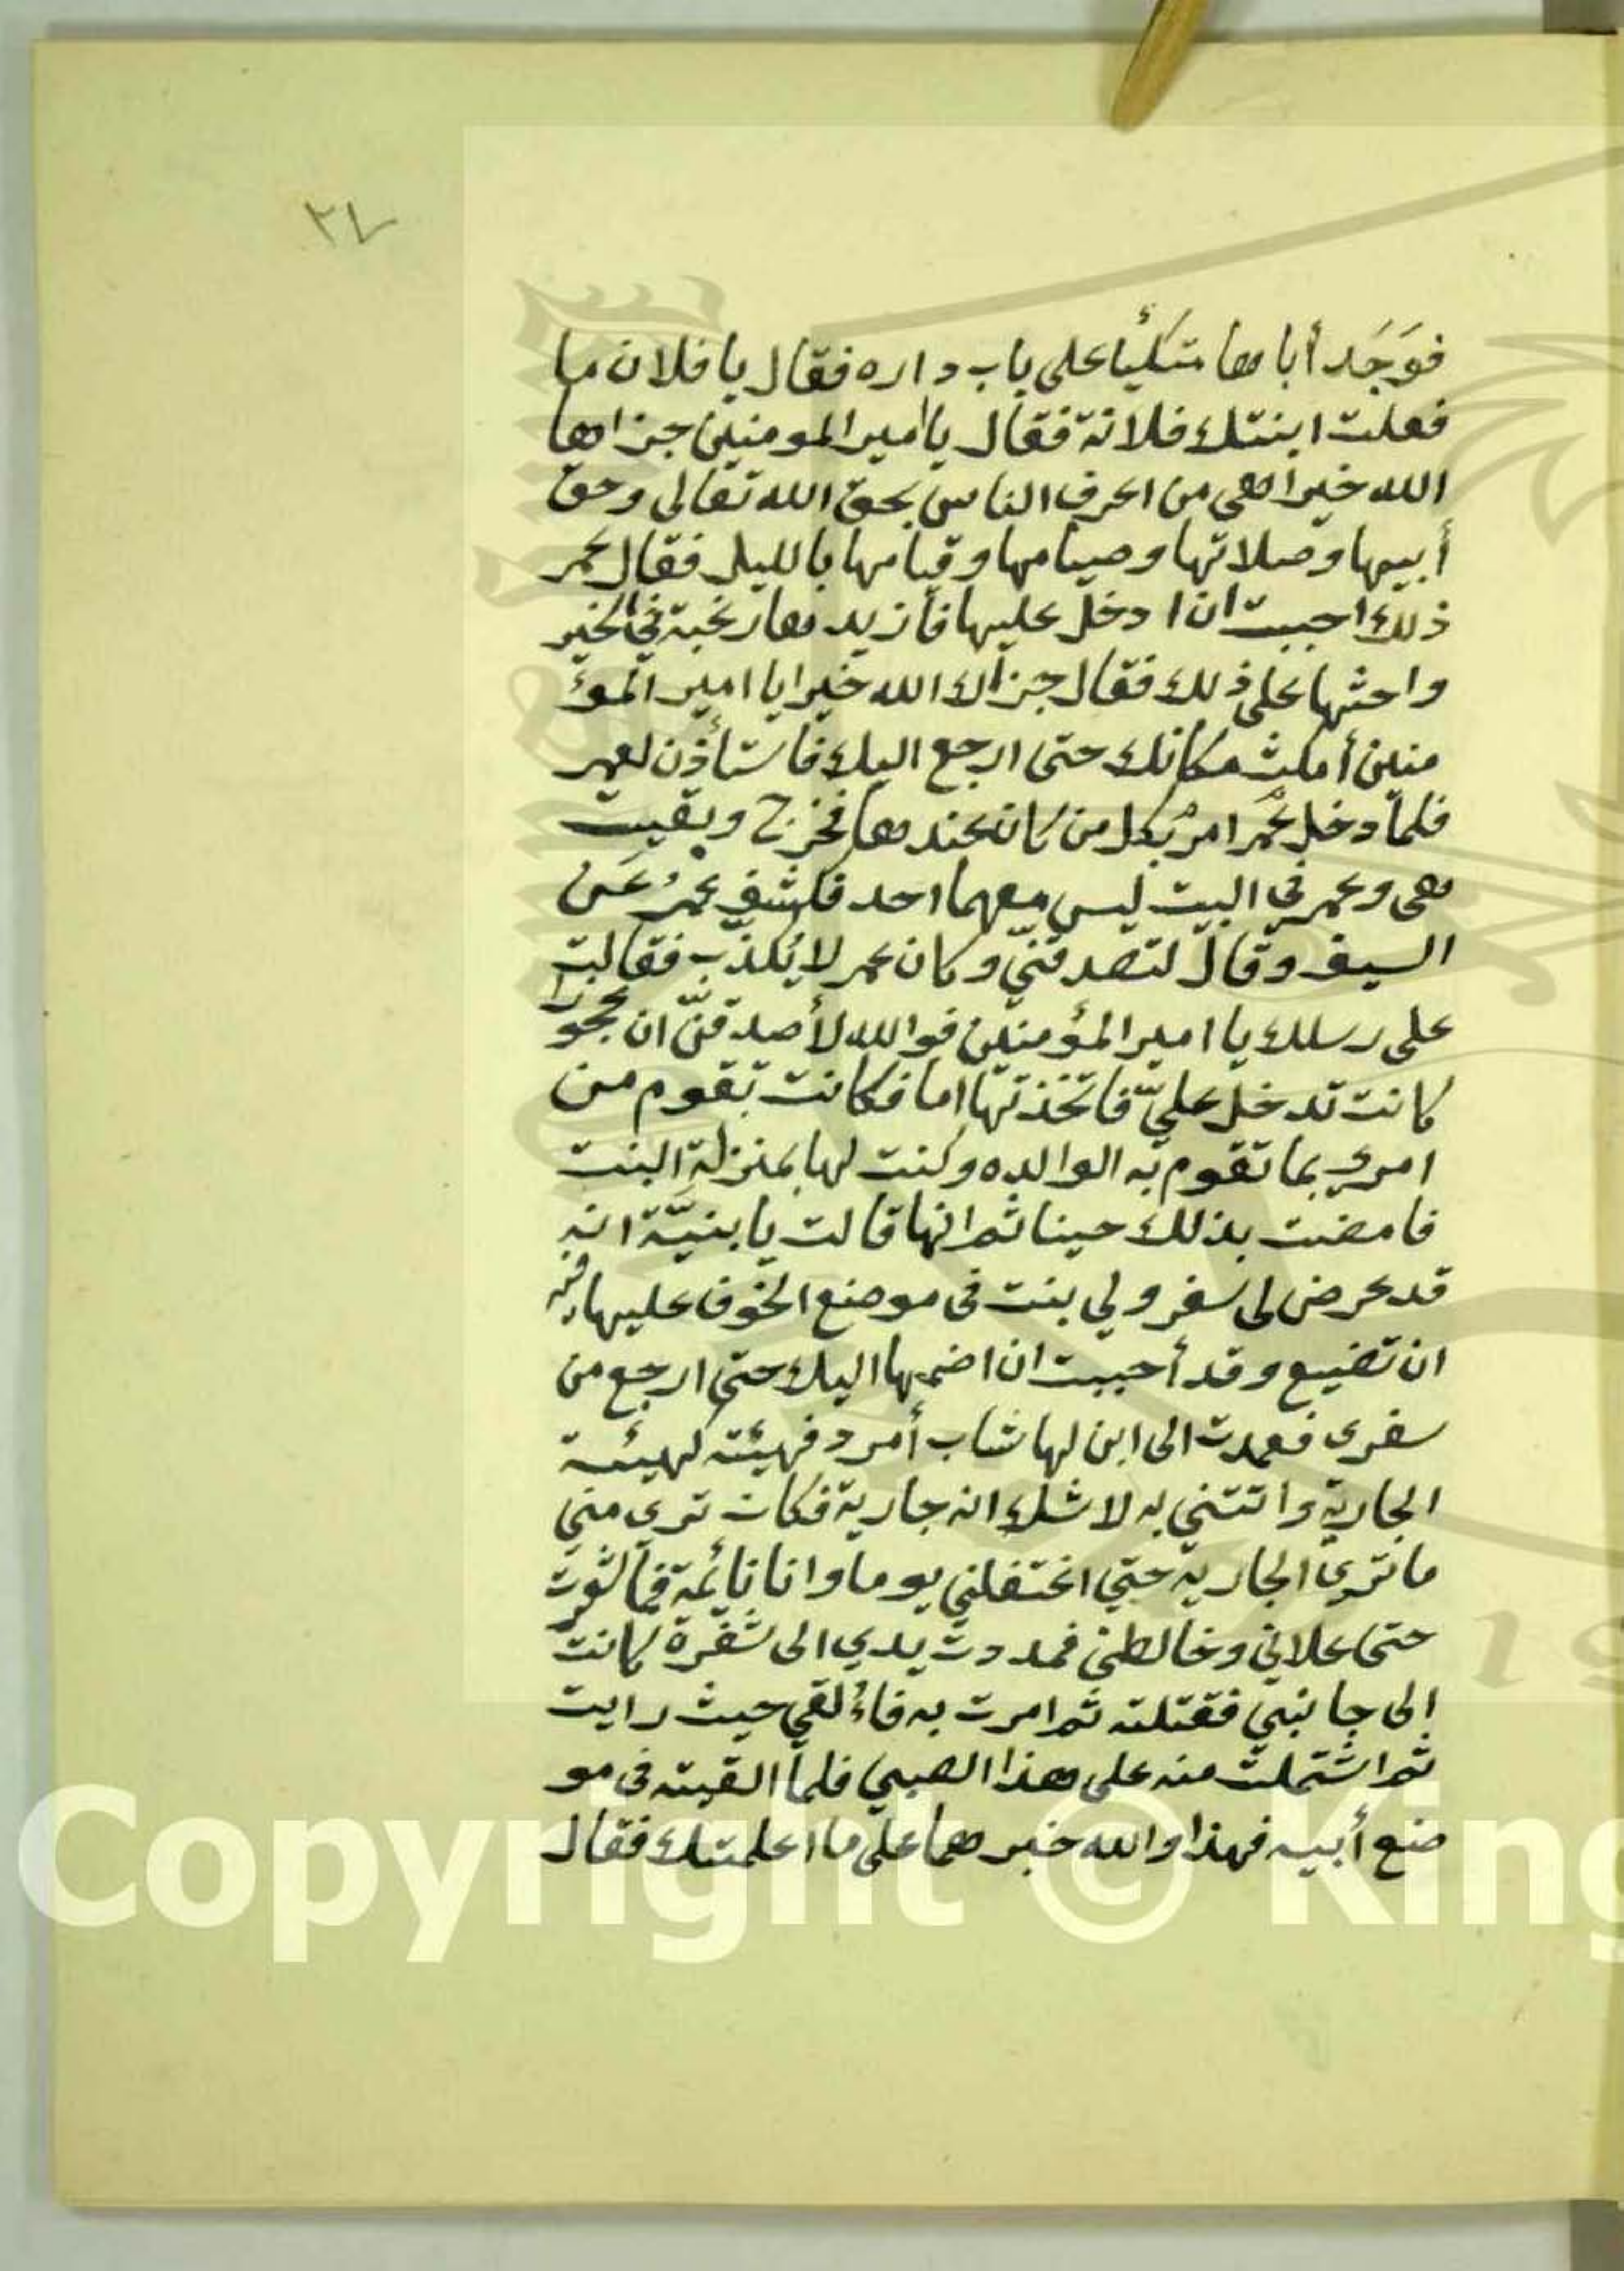 ٢٤
فوَجَد أباها متكئًا على باب داره فقال يا فلان ما
فعلت ابنتك فلانة فقال يا امير المومنين جزاها
الله خيرا هي من اعرف الناس بحق الله تعالى وحق
أبيها وصلاتها وصيامها وقيامها بالليل فقال عمر
ذلك احببت ان ادخل عليها فأزيدها رغبة في الخير
واحثها على ذلك فقال جزاك الله خيرا يا امير المؤ
منين أمكث مكانك حتى ارجع اليك فاستأذن لعمر
فلما دخل عمر امر بكل من كان عندها فخرج وبقيت
هي وعمر في البيت ليس معهما احد فكشف عمرُ عَن
السيف وقال لتصدقنّي وكان عمر لا يُكذّب فقالت
على رسلك يا امير المؤمنين فوالله لأصدقنّ ان عجوزا
كانت تدخل عليّ فاتخذتها اما فكانت تقوم من
امري بما تقوم به الوالده وكنت لها بمنزلة البنت
فامضت بذلك حينا ثم انها قالت يا بنيّة انه
قد عرض لى سفر ولي بنت فى موضع الخوف عليها فيه
ان تضيع وقد أحببت ان اضمها اليك حتى ارجع من
سفرى فعمدت الى ابن لها شاب أمرد فهيئته كهيئة
الجارية واتتني به لا شك انه جارية فكان ترى مني
ما ترى الجارية حتي اغتفلني يوما وانا نائمة فما شعرت
حتى علاني وخالطني فمددت يدي الى شفرة كانت
إلى جانبي فقتلته ثم امرت به فاءُلقي حيث رايت
ثم اشتملت منه على هذا الصبي فلما القيته فى مو
ضع أبيه فهذا والله خبرهما على ما اعلمتك فقال
Copyright © King